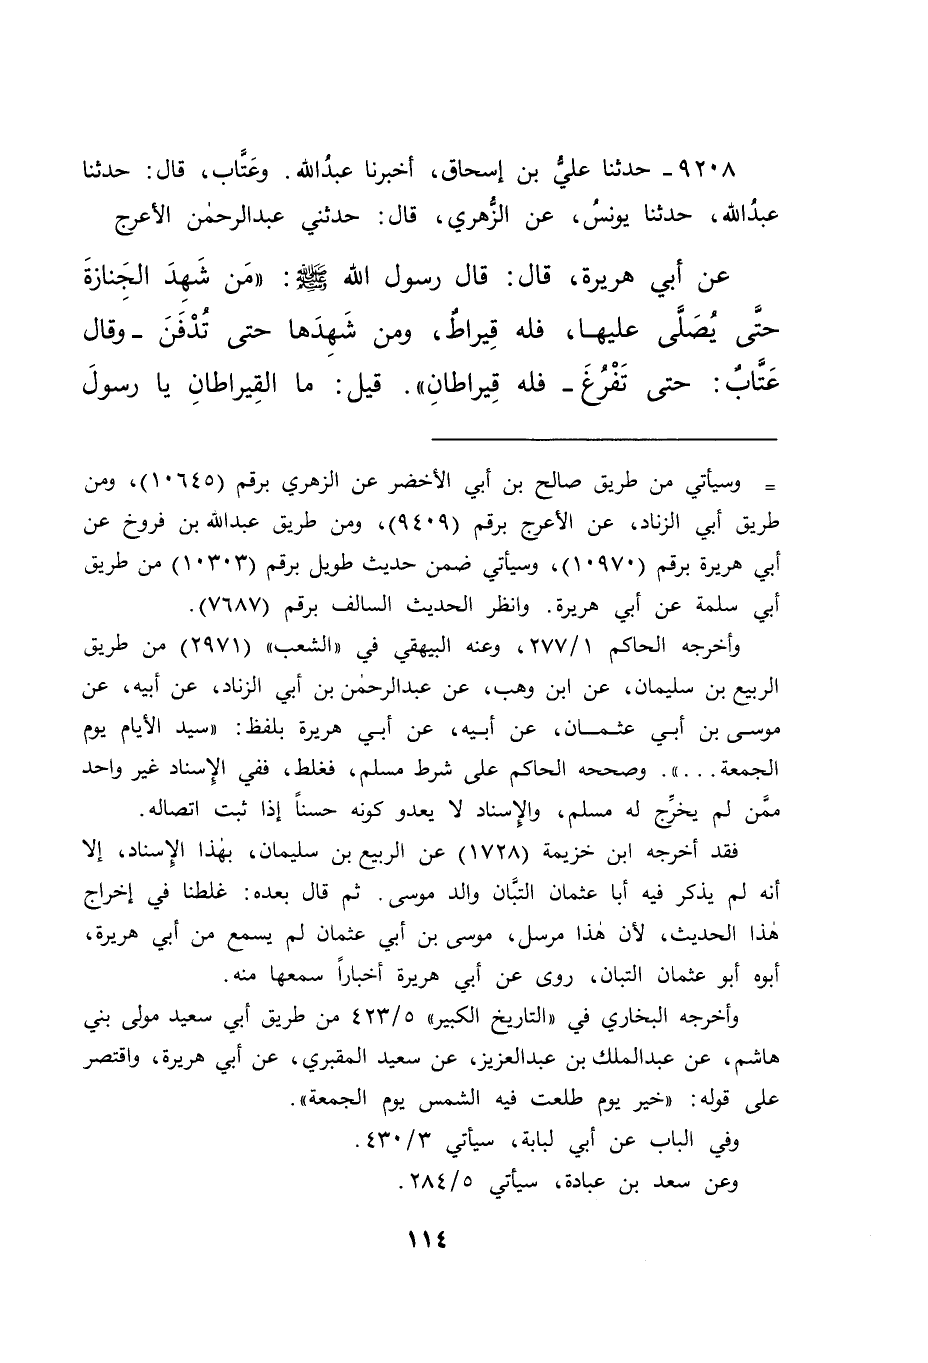 ٩٢٠٨ـ حدثنا عليُّ بن إسحاق، أخبرنا عبدُالله. وعَتَّاب، قال: حدثنا
عبدُالله، حدثنا يونسُ، عن الزُّهري، قال: حدثني عبدالرحمٰن الأعرج
عن أبي هريرة، قال: قال رسول الله ﷺ: «مَن شَهِدَ الجَنازةَ
حتَّى يُصَلَّى عليها، فله قِيراطٌ، ومن شَهِدَها حتى تُدْفَنَ ـ وقال
عَتَّابٌ: حتى تَفْرُغَ ـ فله قِيراطانِ». قيل: ما القِيراطانِ يا رسولَ
= وسيأتي من طريق صالح بن أبي الأخضر عن الزهري برقم (١٠٦٤٥)، ومن
طريق أبي الزناد، عن الأعرج برقم (٩٤٠٩)، ومن طريق عبدالله بن فروخ عن
أبي هريرة برقم (١٠٩٧٠)، وسيأتي ضمن حديث طويل برقم (١٠٣٠٣) من طريق
أبي سلمة عن أبي هريرة. وانظر الحديث السالف برقم (٧٦٨٧).
وأخرجه الحاكم ٢٧٧/١، وعنه البيهقي في «الشعب» (٢٩٧١) من طريق
الربيع بن سليمان، عن ابن وهب، عن عبدالرحمٰن بن أبي الزناد، عن أبيه، عن
موسى بن أبي عثمان، عن أبيه، عن أبي هريرة بلفظ: «سيد الأيام يوم
الجمعة...». وصححه الحاكم على شرط مسلم، فغلط، ففي الإسناد غير واحد
ممَّن لم يخرِّج له مسلم، والإسناد لا يعدو كونه حسناً إذا ثبت اتصاله.
فقد أخرجه ابن خزيمة (١٧٢٨) عن الربيع بن سليمان، بهٰذا الإسناد، إلا
أنه لم يذكر فيه أبا عثمان التبَّان والد موسى. ثم قال بعده: غلطنا في إخراج
هٰذا الحديث، لأن هٰذا مرسل، موسى بن أبي عثمان لم يسمع من أبي هريرة،
أبوه أبو عثمان التبان، روى عن أبي هريرة أخباراً سمعها منه.
وأخرجه البخاري في «التاريخ الكبير» ٤٢٣/٥ من طريق أبي سعيد مولى بني
هاشم، عن عبدالملك بن عبدالعزيز، عن سعيد المقبري، عن أبي هريرة، واقتصر
على قوله: «خير يوم طلعت فيه الشمس يوم الجمعة».
وفي الباب عن أبي لبابة، سيأتي ٤٣٠/٣.
وعن سعد بن عبادة، سيأتي ٢٨٤/٥.
١١٤